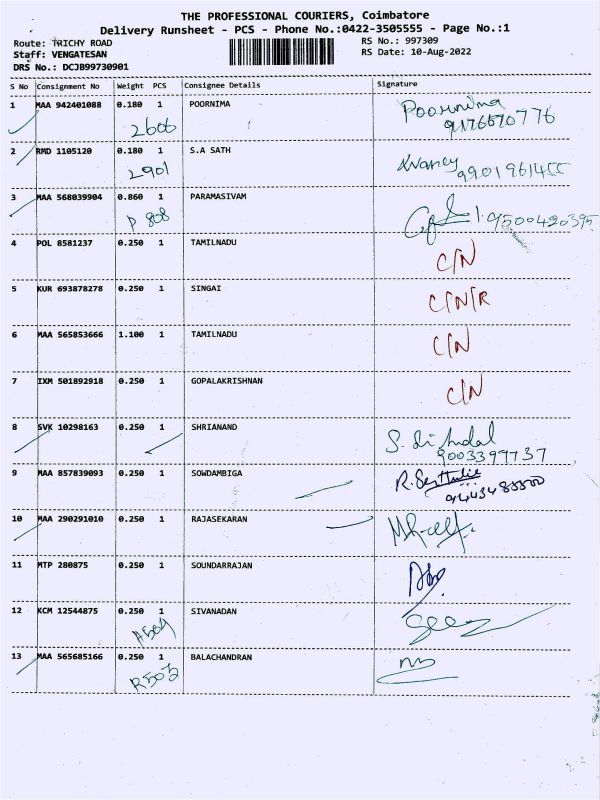 THE PROFESSIONAL COURIERS, Coimbatore
Delivery Runsheet - PCS - Phone No.:0422-3505555 - Page No.:1
Route: TRICHY ROAD
RS No.: 997309
Staff: VENGATESAN
RS Date: 10-Aug-2022
DRS No.: DCJB99730901
S No Consignment No Weight PCS Consignee Details Signature
1 MAA 942401088 0.180 1 POORNIMA Poornima
2606 9176670776
2 RMD 1105120 0.180 1 S.A SATH
2901 9901961455
3 MAA 568039904 0.860 1 PARAMASIVAM
P 808 9500420395
4 POL 8581237 0.250 1 TAMILNADU C/N
5 KUR 693878278 0.250 1 SINGAI C/N/R
6 MAA 565853666 1.100 1 TAMILNADU C/N
7 IXM 501892918 0.250 1 GOPALAKRISHNAN C/N
8 SVK 10298163 0.250 1 SHRIANAND
9003399737
9 MAA 857839093 0.250 1 SOWDAMBIGA
10 MAA 290291010 0.250 1 RAJASEKARAN
11 MTP 280875 0.250 1 SOUNDARRAJAN
12 KCM 12544875 0.250 1 SIVANADAN
A504
13 MAA 565685166 0.250 1 BALACHANDRAN
R503